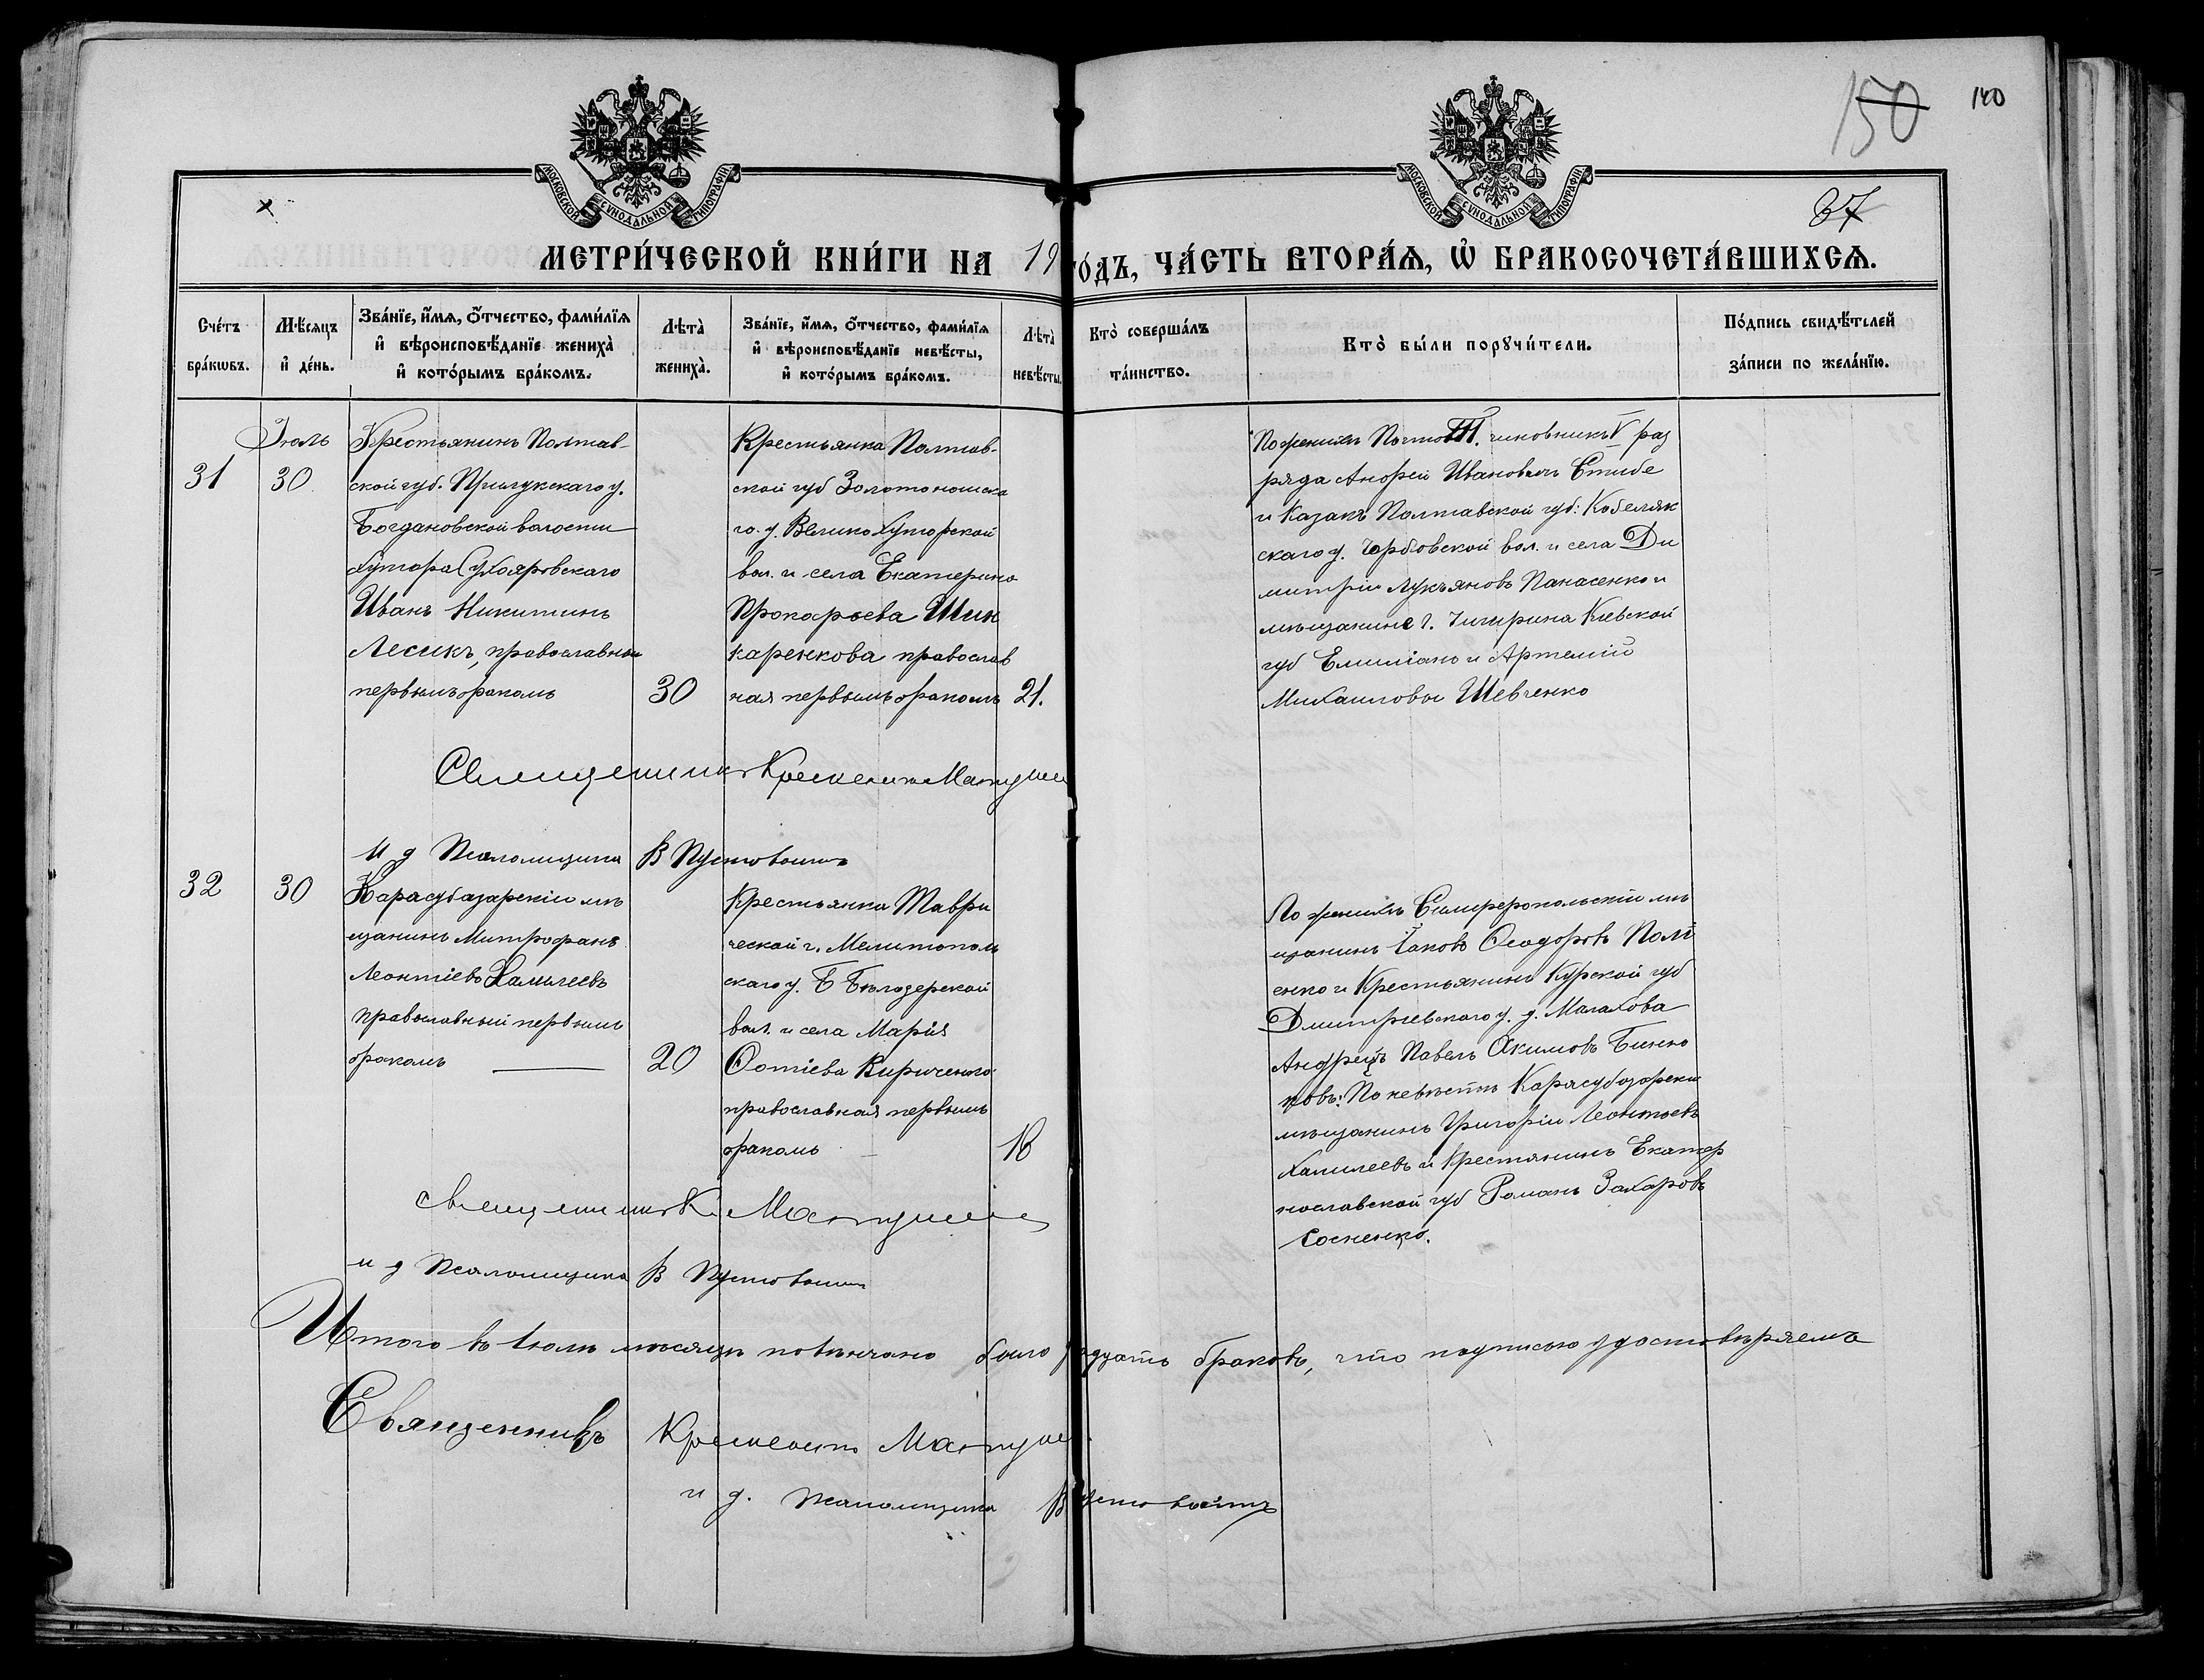 150
140
37
МОСКОВСКОЙ СѴНОДАЛЬНОЙ ТИПОГРАФІИ
МОСКОВСКОЙ СѴНОДАЛЬНОЙ ТИПОГРАФІИ
МЕТРИ́ЧЕСКОЙ КНИ́ГИ НА 19
ГО́ДЪ, ЧА́СТЬ ВТОРА́Ѧ, Ѡ҆ БРАКОСОЧЕТА́ВШИХСѦ.
Сче́тъ бра́кѡвъ.
Мѣ́сяцъ и҆ де́нь.
Зва́нїе, и҆́мѧ, ѻ҆́тчество, фами́лїѧ
и҆ вѣроисповѣ́данїе жениха̀
и҆ кото́рымъ бра́комъ.
Лѣта̀ жениха̀.
Зва́нїе, и҆́мѧ, ѻ҆́тчество, фами́лїѧ
и҆ вѣроисповѣ́данїе невѣ́сты,
и҆ кото́рымъ бра́комъ.
Лѣта̀ невѣ́сты.
Кто̀ соверша́лъ
та́инство.
Кто̀ бы́ли порꙋчи́тели.
По́дпись свидѣ́телей
за́писи по жела́нїю.
31
Іюль
30
Крестьянинъ Полтав-
ской губ. Прилукскаго у.
Богдановской волости
хутора Сухояровскаго
Иванъ Никитинъ
Лесикъ, православный
первымъ бракомъ
30
Крестьянка Полтав-
ской губ Золотоношска
го у. Великохуторской
вол. и села Екатерина
Прокофьева Шин
каренкова православ
ная первымъ бракомъ
21.
По женихѣ чиновникъ V раз
ряда Андрей Ивановичъ
и Казакъ Полтавской губ: Кобеляк
скаго у. вол. и села Ди
митрій Лукъяновъ Панасенко и
мѣщанине г. Чигирина Кіевской
губ Емиліанъ и Артемій
Михаиловы Шевченко
Священникъ
И д Псаломщика В Пустовойтъ
32
30
Карасубазарскій мѣ
щанинъ Митрофанъ
Леонтіевъ Халилеевъ
православный первымъ
бракомъ
20
Крестьянка Таври
ческой г. Мелитополь
скаго у. Б Бѣлозерской
вол. и села Марія
Фотіева Кириченко
православная первымъ
бракомъ
18
По женихѣ Симферопольскій мѣ
щанинъ Іаковъ Ѳеодоровъ Полі
енко и Крестьянинъ Курской губ
Дмитріевскаго у. д. Малахова
Павелъ Акимовъ
По невѣстѣ Карасубазарскій
мѣщанинъ Григорій Леонтьевъ
Халилеевъ и Крестянинъ Екатер
нославской губ Романъ Захаровъ
Сосненко.
священникъ К.
и д Псаломщика В Пустовойтъ
Итого въ іюлѣ мѣсяцѣ повѣнчано было браковъ, что подписью удостовѣряемъ
Священникъ
и д. псаломщика